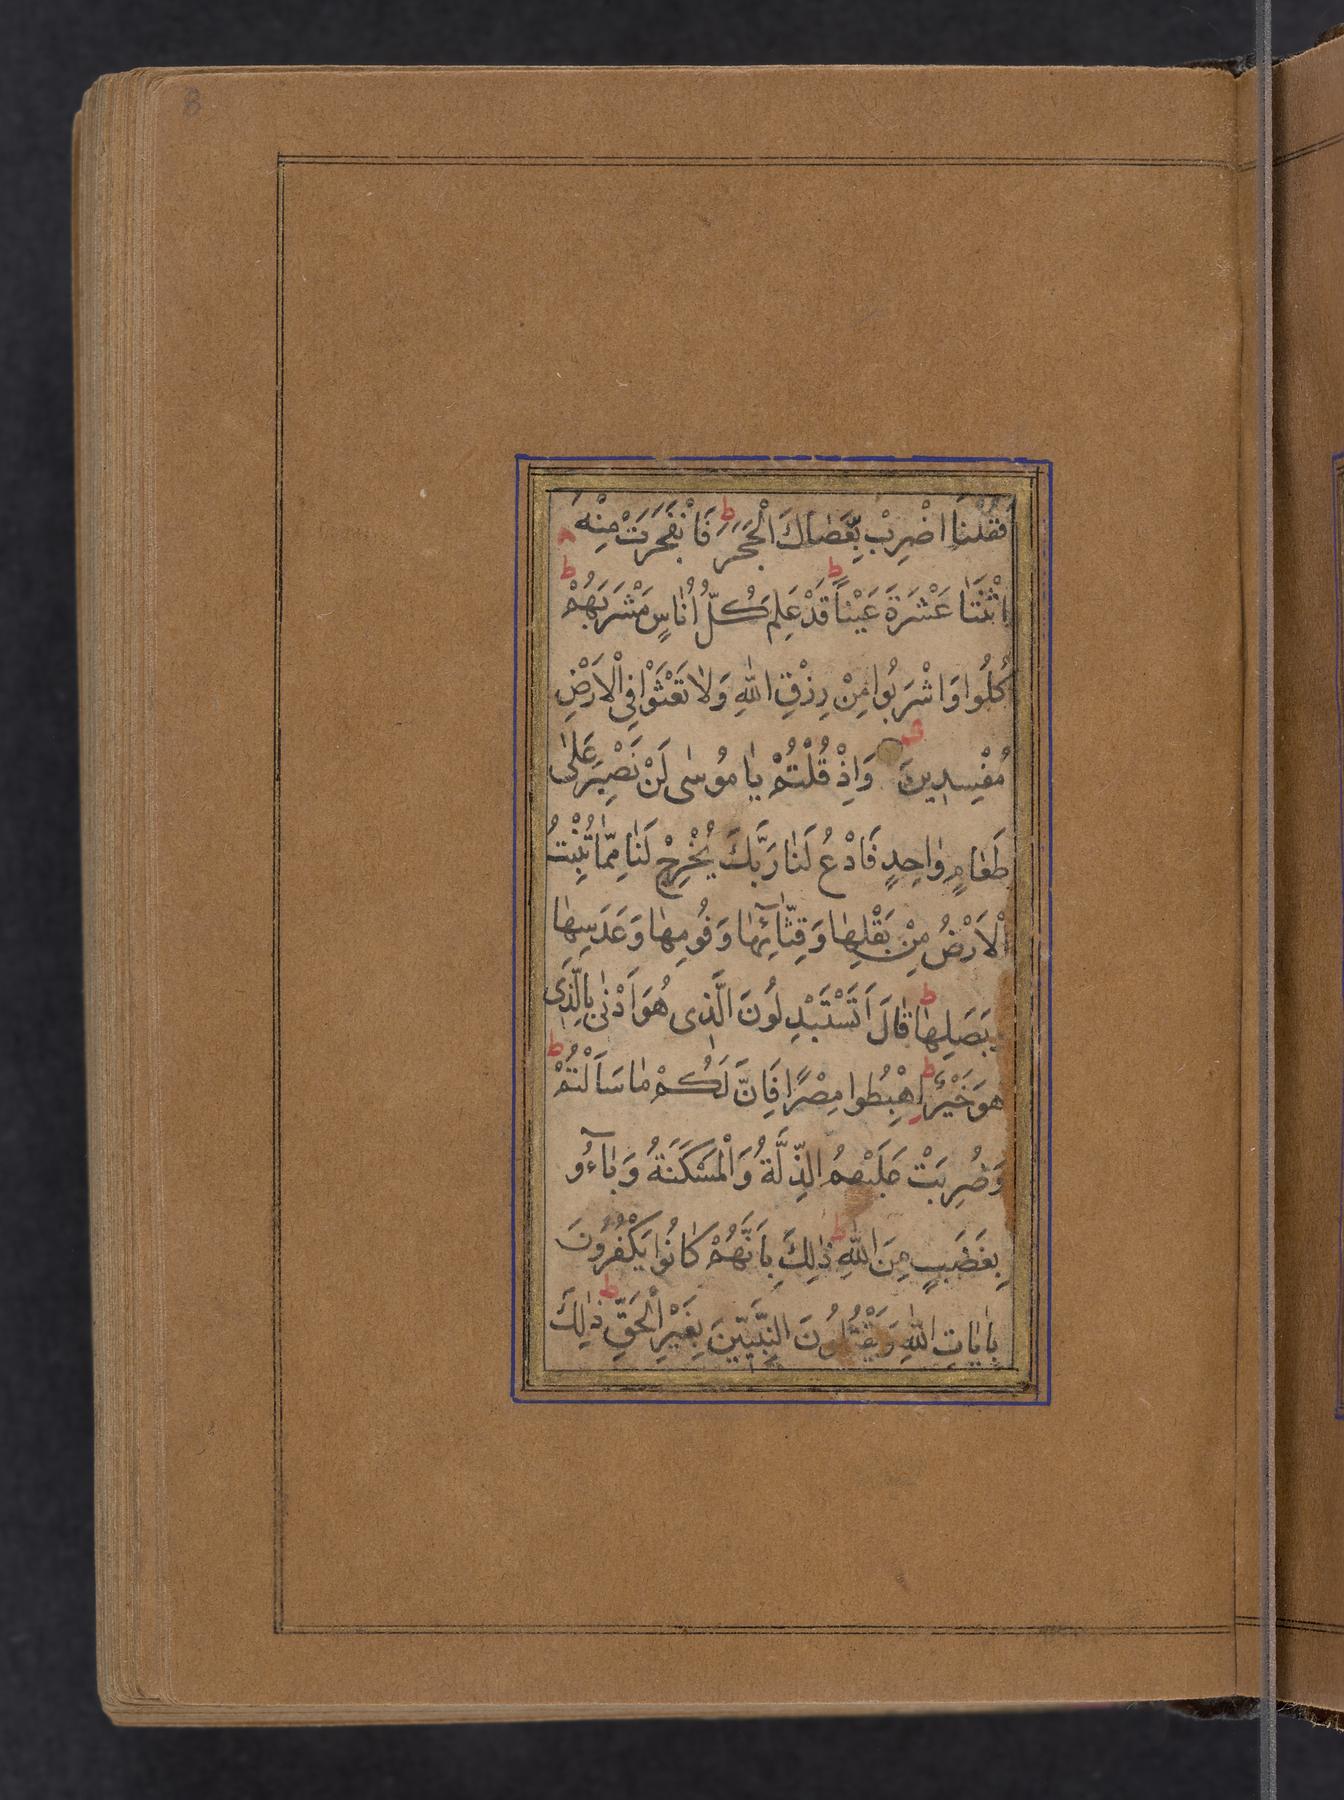 8
فَقُلْنَا اضْرِبْ بِعَصَاكَ الْحَجَرَ ط فَانْفَجَرَتْ مِنْهُ
اثْنَتَا عَشْرَةَ عَيْنًا ط قَدْ عَلِمَ كُلُّ اُنَاسٍ مَشْرَبَهُمْ ط
كُلُوا وَاشْرَبُوا مِنْ رِزْقِ اللّٰهِ وَلَا تَعْثَوْا فِى الْاَرْضِ
مُفْسِدِينَ وَاِذْ قُلْتُمْ يَا مُوسٰى لَنْ نَصْبِرَ عَلٰى
طَعَامٍ وَاحِدٍ فَادْعُ لَنَا رَبَّكَ يُخْرِجْ لَنَا مِمَّا تُنْبِتُ
الْاَرْضُ مِنْ بَقْلِهَا وَقِثَّآئِهَا وَفُومِهَا وَعَدَسِهَا
وَبَصَلِهَا ط قَالَ اَتَسْتَبْدِلُونَ الَّذِى هُوَ اَدْنٰى بِالَّذِى
هُوَ خَيْرٌ ط اِهْبِطُوا مِصْرًا فَاِنَّ لَكُمْ مَا سَاَلْتُمْ ط
وَضُرِبَتْ عَلَيْهِمُ الذِّلَّةُ وَالْمَسْكَنَةُ وَبَآءُو
بِغَضَبٍ مِنَ اللّٰهِ ط ذٰلِكَ بِاَنَّهُمْ كَانُوا يَكْفُرُونَ
بِاٰيَاتِ اللّٰهِ وَيَقْتُلُونَ النَّبِيِّينَ بِغَيْرِ الْحَقِّ ط ذٰلِكَ